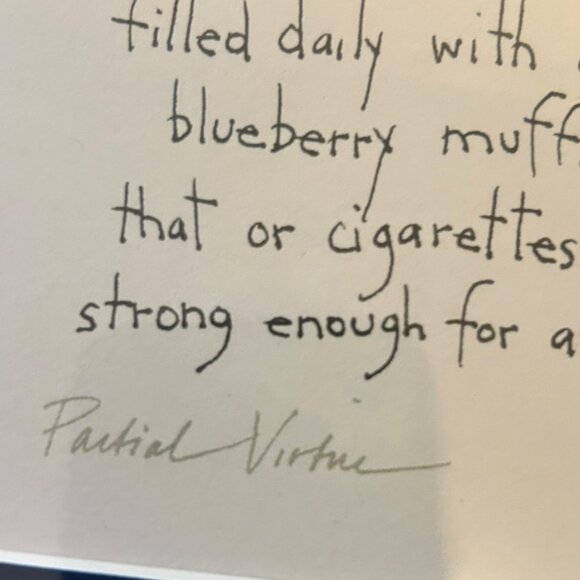 filled daily with
blueberry muff
that or cigarettes
strong enough for a
Partial Virtue